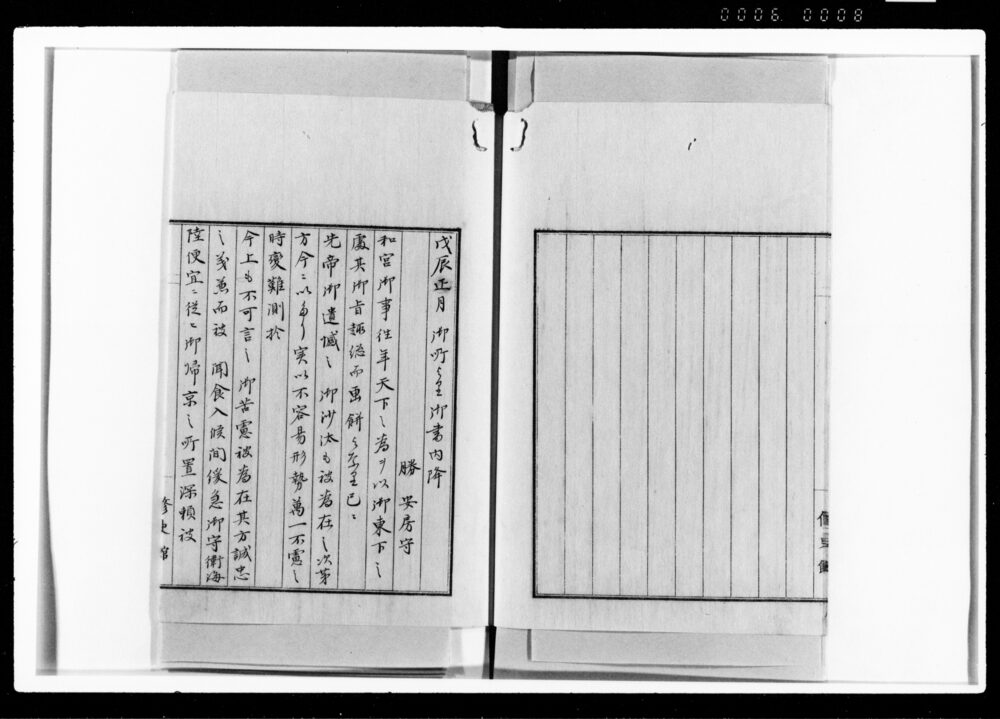 0006 0008
戊辰正月 御所ゟ之御書内降
勝 安房守
和宮御事往年天下之為ヲ以御東下之
處其御旨趣總而画餅与相至已ニ
先帝御遺憾之 御沙汰も被為在之次第
方今ニ以多り実以不容易形勢萬一不慮之
時変難測於
今上も不可言之 御苦慮被為在其方誠忠
之義兼而被 聞食入候間緩急御守衛海
陸便宜ニ従ヒ御帰京之所置深頼被
修史館
修史館